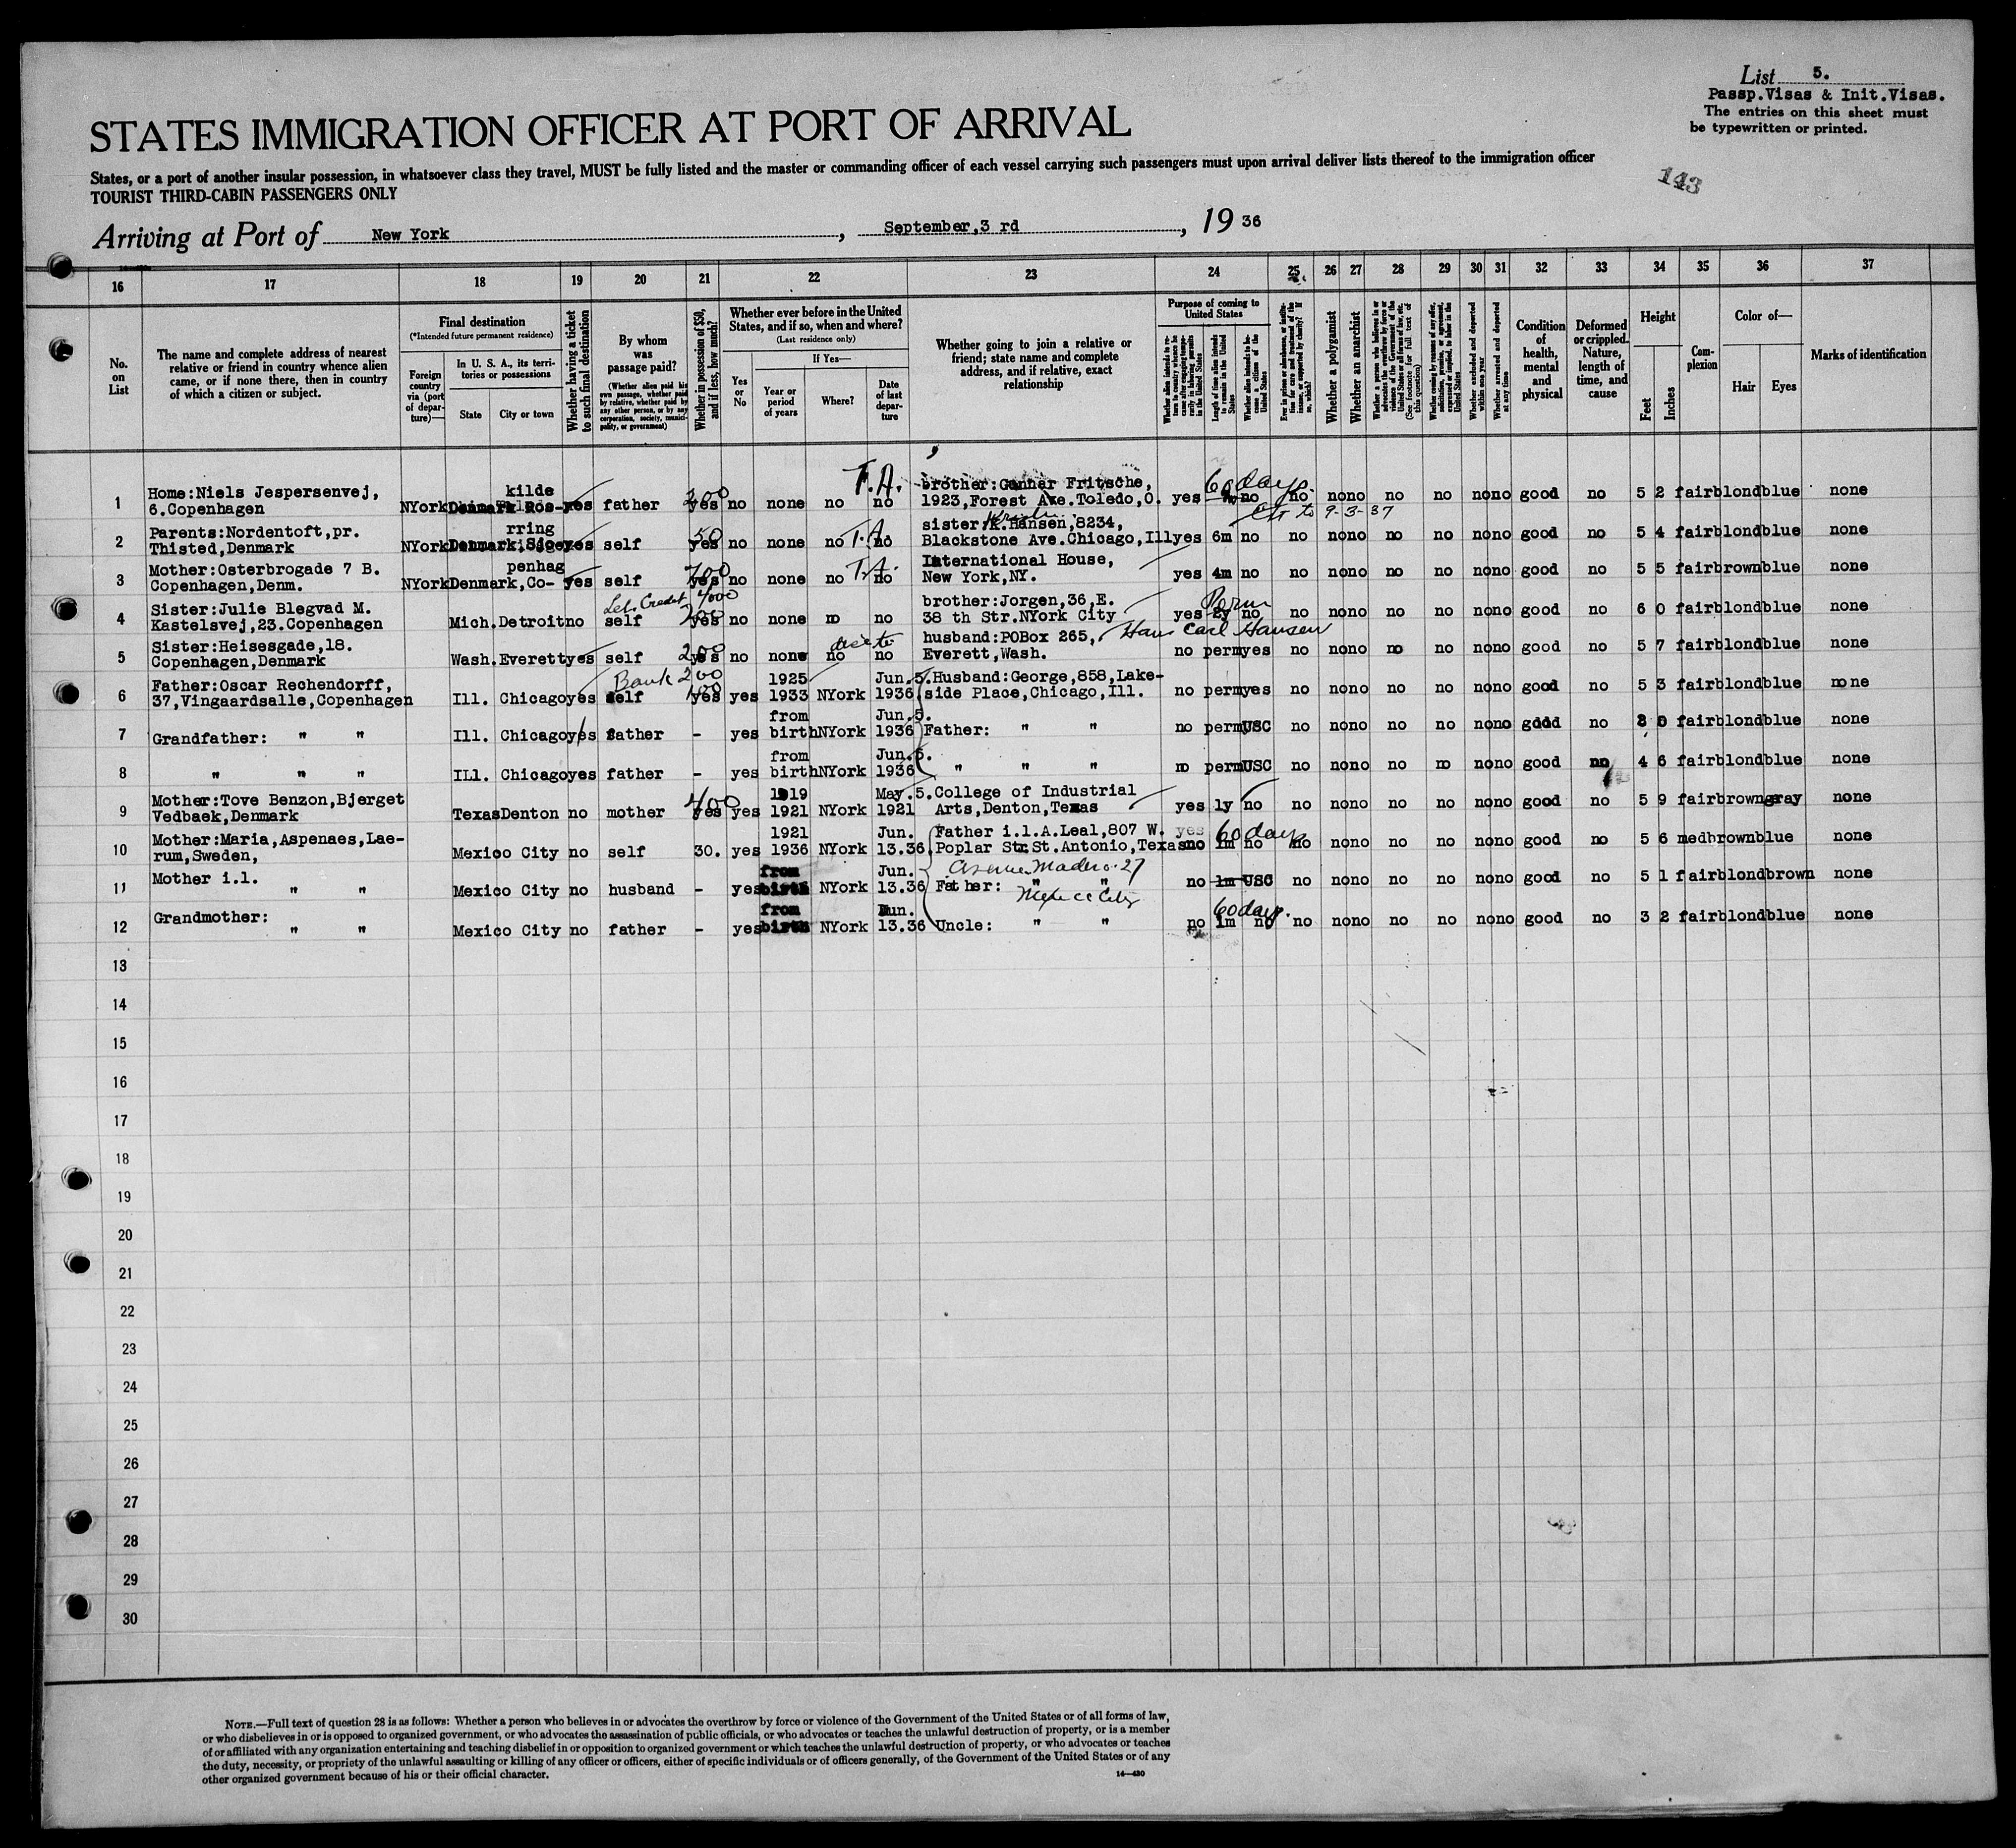 List 5.
Passp.Visas & Init.Visas.
The entries on this sheet must
be typewritten or printed.
143
STATES IMMIGRATION OFFICER AT PORT OF ARRIVAL
States, or a port of another insular possession, in whatsoever class they travel, MUST be fully listed and the master or commanding officer of each vessel carrying such passengers must upon arrival deliver lists thereof to the immigration officer
TOURIST THIRD-CABIN PASSENGERS ONLY
Arriving at Port of New York , September,3 rd , 19 36
16 17 18 19 20 21 22 23 24 25 26 27 28 29 30 31 32 33 34 35 36 37
No. on List
The name and complete address of nearest relative or friend in country whence alien came, or if none there, then in country of which a citizen or subject.
Final destination
(*Intended future permanent residence)
Foreign country via (port of departure)—
In U. S. A., its territories or possessions
State
City or town
Whether having a ticket to such final destination
By whom was passage paid?
(Whether alien paid his own passage, whether paid by relative, whether paid by any other person, or by any corporation, society, municipality, or government)
Whether in possession of $50, and if less, how much?
Whether ever before in the United States, and if so, when and where?
(Last residence only)
Yes or No
If Yes—
Year or period of years
Where?
Date of last departure
Whether going to join a relative or friend; state name and complete address, and if relative, exact relationship
Purpose of coming to United States
Length of time alien intends to remain in the United States
Whether alien intends to become a citizen of the United States
Whether a polygamist
Whether an anarchist
(See footnote for full text of this question)
Whether arrested and deported at any time
Condition of health, mental and physical
Deformed or crippled. Nature, length of time, and cause
Height
Feet
Inches
Complexion
Color of—
Hair
Eyes
Marks of identification
T.A. 60 days
1 Home:Niels Jespersenvej, kilde 200 brother:Gunnar Fritsche,
6.Copenhagen NYork Denmark Ros- yes father yes no none no no 1923,Forest Ave.Toledo,O. yes no no no no no no no no good no 5 2 fair blond blue none
to 9-3-37
2 Parents:Nordentoft,pr. rring 50 T.A. sister:K.Hansen,8234,
Thisted,Denmark NYork Denmark, yes self yes no none no no Blackstone Ave.Chicago,Ill yes 6m no no no no no no no no good no 5 4 fair blond blue none
3 Mother:Osterbrogade 7 B. penhag 200 T.A. International House,
Copenhagen,Denm. NYork Denmark,Co- yes self yes no none no no New York,NY. yes 4m no no no no no no no no good no 5 5 fair brown blue none
4 Sister:Julie Blegvad M. Let. Credit 4000 200 brother:Jorgen,36,E. Perm
Kastelsvej,23.Copenhagen Mich. Detroit no self yes no none no no 38 th Str.NYork City yes 2y no no no no no no no no good no 6 0 fair blond blue none
5 Sister:Heisesgade,18. 200 husband:POBox 265, Hans Carl Hansen
Copenhagen,Denmark Wash. Everett yes self yes no none no no Everett,Wash. no perm yes no no no no no no no good no 5 7 fair blond blue none
6 Father:Oscar Rechendorff, Bank 200 100 1925 Jun.5. Husband:George,858,Lake-
37,Vingaardsalle,Copenhagen Ill. Chicago yes self yes yes 1933 NYork 1936 side Place,Chicago,Ill. no perm yes no no no no no no no good no 5 3 fair blond blue none
from Jun.5.
7 Grandfather: " " Ill. Chicago yes father - yes birth NYork 1936 Father: " " no perm USC no no no no no no no good no 3 0 fair blond blue none
from Jun.5.
8 " " " ILl. Chicago yes father - yes birth NYork 1936 " " " no perm USC no no no no no no no good no 4 6 fair blond blue none
9 Mother:Tove Benzon,Bjerget 400 1919 May.5. College of Industrial
Vedbaek,Denmark Texas Denton no mother yes yes 1921 NYork 1921 Arts,Denton,Texas yes 1y no no no no no no no no good no 5 9 fair brown gray none
10 Mother:Maria,Aspenaes,Lae- 1921 Jun. Father i.l.A.Leal,807 W. yes 60 days
rum,Sweden, Mexico City no self 30. yes 1936 NYork 13.36. Poplar Str.St.Antonio,Texas no 1m no no no no no no no no good no 5 6 med brown blue none
11 Mother i.l. from Jun. Madero 27
" " Mexico City no husband - yes birth NYork 13.36 Father: " " no 1m USC no no no no no no no good no 5 1 fair blond brown none
Mexico City
12 Grandmother: from Jun. 60 days.
" " Mexico City no father - yes birth NYork 13.36 Uncle: " " no 1m no no no no no no no no good no 3 2 fair blond blue none
13
14
15
16
17
18
19
20
21
22
23
24
25
26
27
28
29
30
NOTE.—Full text of question 28 is as follows: Whether a person who believes in or advocates the overthrow by force or violence of the Government of the United States or of all forms of law,
or who disbelieves in or is opposed to organized government, or who advocates the assassination of public officials, or who advocates or teaches the unlawful destruction of property, or is a member
of or affiliated with any organization entertaining and teaching disbelief in or opposition to organized government or which teaches the unlawful destruction of property, or who advocates or teaches
the duty, necessity, or propriety of the unlawful assaulting or killing of any officer or officers, either of specific individuals or of officers generally, of the Government of the United States or of any
other organized government because of his or their official character.
14—430